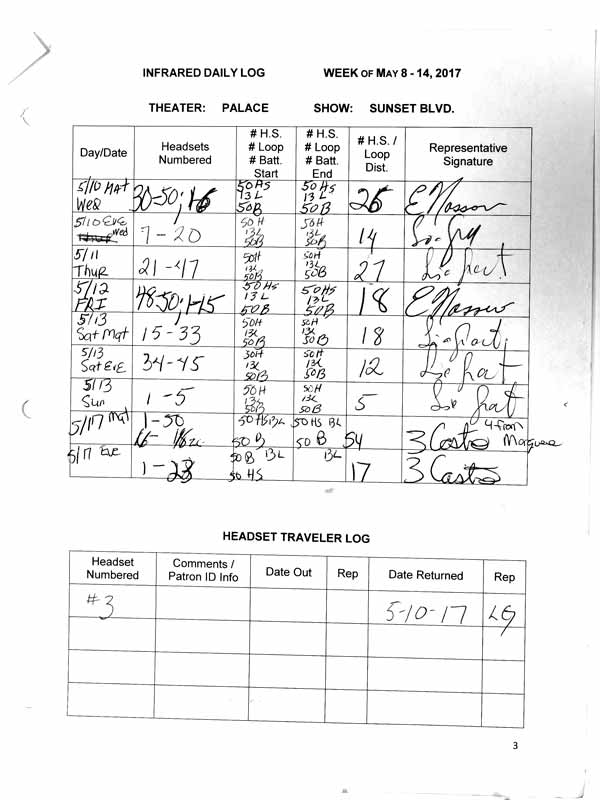 INFRARED DAILY LOG WEEK OF MAY 8 - 14, 2017
THEATER: PALACE SHOW: SUNSET BLVD.
Day/Date Headsets Numbered # H.S. # Loop # Batt. Start # H.S. # Loop # Batt. End # H.S. / Loop Dist. Representative Signature
5/10 MAT Wed 30-50; 1-6 50 HS 13 L 50B 50 HS 13 L 50B 26
5/10 EVE Wed 7-20 50H 13L 50B 50H 13L 50B 14
5/11 Thur 21-47 50H 13L 50B 50H 13L 50B 27
5/12 FRI 48-50; 1-15 50 HS 13 L 50B 50 HS 13 L 50B 18
5/13 Sat Mat 15-33 50H 13L 50B 50H 13L 50B 18
5/13 Sat EVE 34-45 50H 13L 50B 50H 13L 50B 12
5/13 Sun 1-5 50H 13L 50B 50H 13L 50B 5
5/17 Mat 1-50 50 HS 50 B 50 HS 50 B 54 3 Castro 4 from Marquee
5/17 Eve 1-23 50 B 50 HS 17 3 Castro
HEADSET TRAVELER LOG
Headset Numbered Comments / Patron ID Info Date Out Rep Date Returned Rep
#3 5-10-17 LG
3